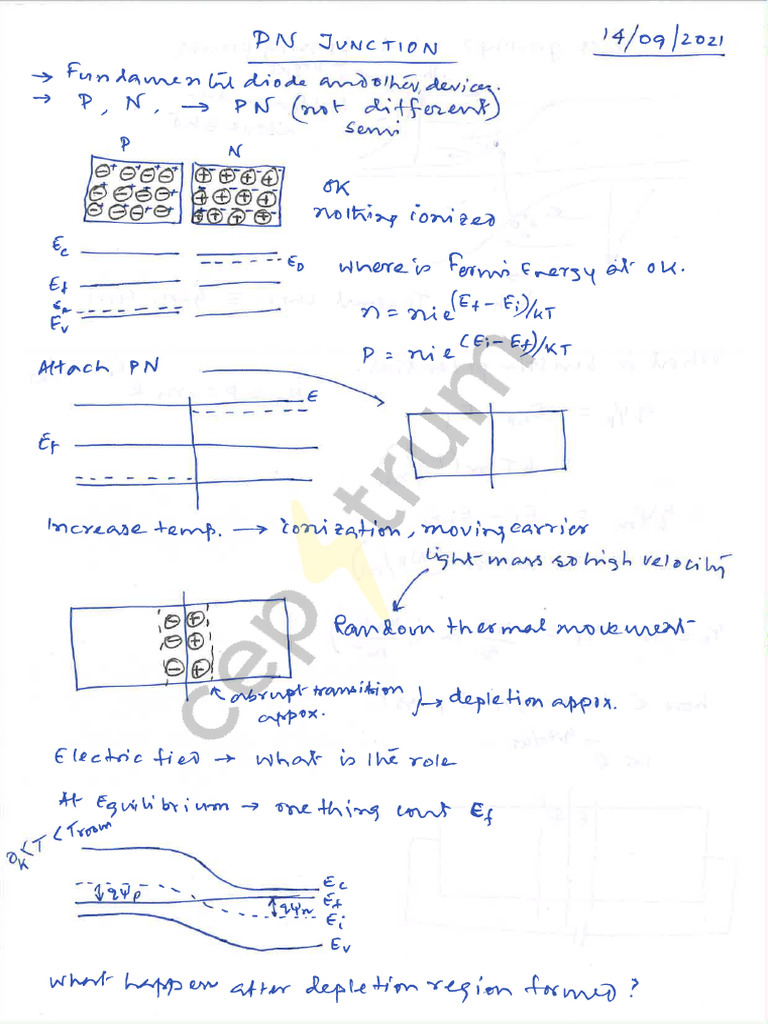 PN JUNCTION
14/09/2021
→ Fundamental diode and other devices.
→ P, N, → PN (not different)
semi
P N
0K
nothing ionized
Ec
ED
Ef
Ea
Ev
where is Fermi Energy at 0K.
n = nie(Ef - Ei)/KT
P = nie(Ei - Ef)/KT
Attach PN
E
Ef
Increase temp. → ionization, moving carrier
light mass so high velocity
Random thermal movement
abrupt transition
approx.
→ depletion appox.
Electric fied → what is the role
At Equilibrium → one thing cont Ef
0K < T < Troom
qψp
qψn
Ec
Ef
Ei
Ev
what happen after depletion region formed?
ceptrum